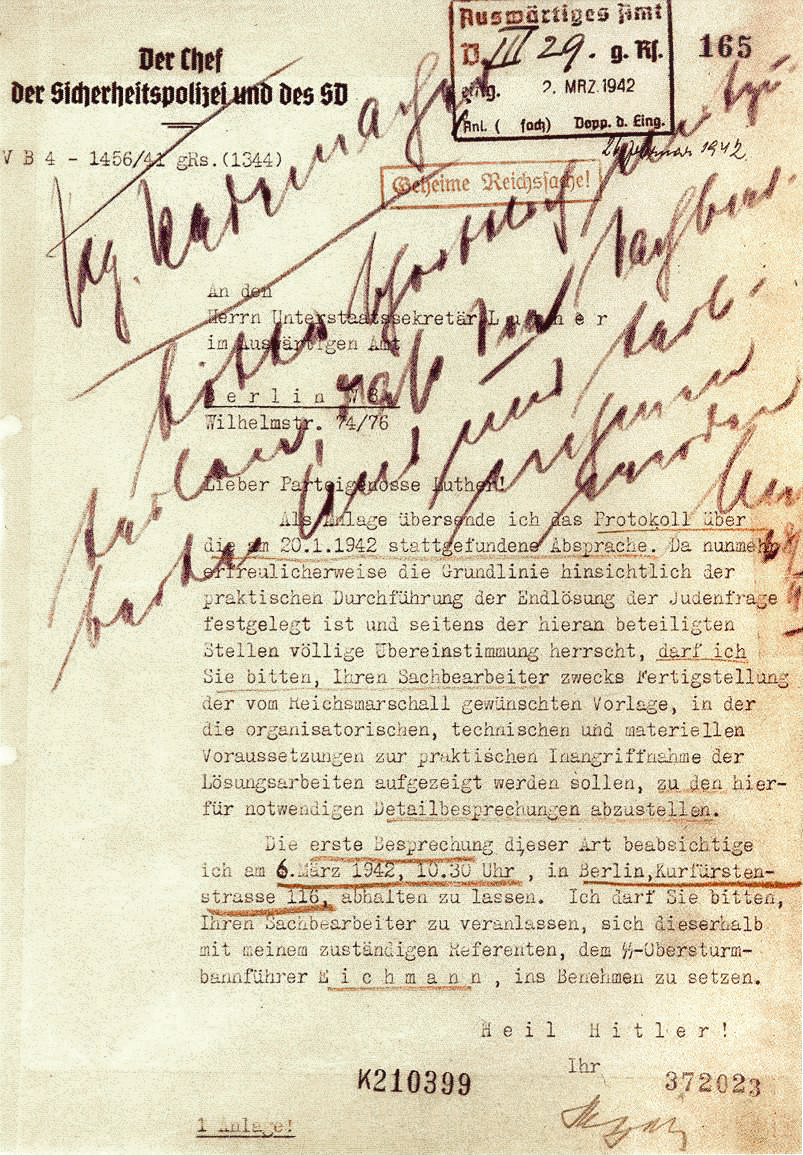 Der Chef
der Sicherheitspolizei und des SD
V B 4 - 1456/41 gRs.(1344)
Auswärtiges Amt
D. III 29. g. Rs.
eing. 2. MRZ. 1942
Anl. ( fach) Dopp. d. Eing.
165
26. Februar 1942.
Geheime Reichssache!
An den
Herrn Unterstaatssekretär L u t h e r
im Auswärtigen Amt
B e r l i n W 8
Wilhelmstr. 74/76
Lieber Parteigenosse Luther!
Als Anlage übersende ich das Protokoll über
die am 20.1.1942 stattgefundene Absprache. Da nunmehr
erfreulicherweise die Grundlinie hinsichtlich der
praktischen Durchführung der Endlösung der Judenfrage
festgelegt ist und seitens der hieran beteiligten
Stellen völlige Übereinstimmung herrscht, darf ich
Sie bitten, Ihren Sachbearbeiter zwecks Fertigstellung
der vom Reichsmarschall gewünschten Vorlage, in der
die organisatorischen, technischen und materiellen
Voraussetzungen zur praktischen Inangriffnahme der
Lösungsarbeiten aufgezeigt werden sollen, zu den hier-
für notwendigen Detailbesprechungen abzustellen.
Die erste Besprechung dieser Art beabsichtige
ich am 6.März 1942, 10.30 Uhr , in Berlin,Kurfürsten-
strasse 116, abhalten zu lassen. Ich darf Sie bitten,
Ihren Sachbearbeiter zu veranlassen, sich dieserhalb
mit meinem zuständigen Referenten, dem SS-Obersturm-
bannführer E i c h m a n n , ins Benehmen zu setzen.
H e i l  H i t l e r !
Ihr
K210399
372023
1 Anlage!